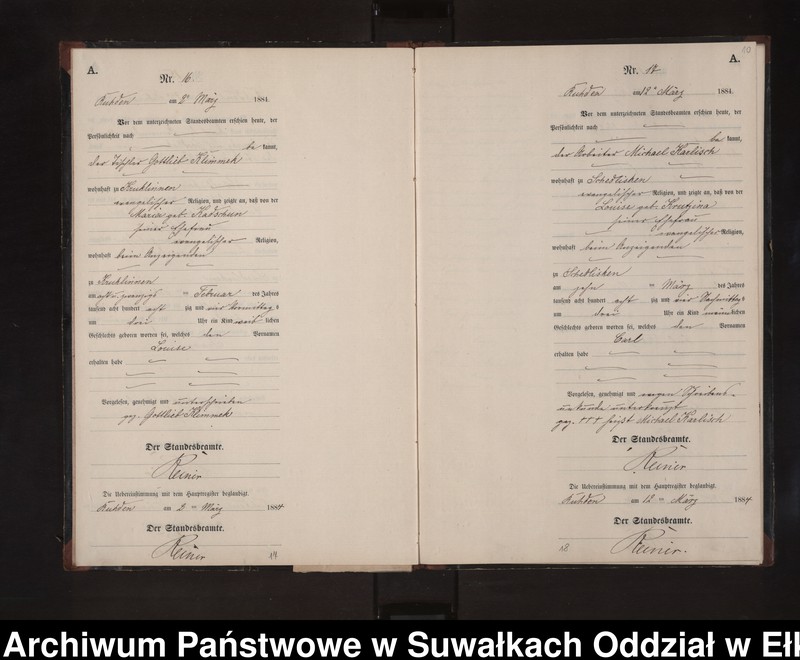 A.
Nr. 16
Kuhden am 2ᵉ März 1884.
Vor dem unterzeichneten Standesbeamten erschien heute, der
Persönlichkeit nach
be kannt,
der Gottlieb Klimmek
wohnhaft zu Kruklinnen
evangelischer Religion, und zeigte an, daß von der
Marie geb: Katschun
seiner Ehefrau
evangelischer Religion,
wohnhaft beim Anzeigenden
zu Kruklinnen
am acht u. zwanzigs ten Februar des Jahres
tausend acht hundert acht zig und vier Vormittag s
um drei Uhr ein Kind weib lichen
Geschlechts geboren worden sei, welches den Vornamen
Louise
erhalten habe
Vorgelesen, genehmigt und unterschrieben
gez. Gottlieb Klimmek
Der Standesbeamte.
Reiner
Die Uebereinstimmung mit dem Hauptregister beglaubigt.
Kuhden am 2 ten März 1884
Der Standesbeamte.
Reiner
10
A.
Nr. 17
Kuhden am 12ᵉ März 1884.
Vor dem unterzeichneten Standesbeamten erschien heute, der
Persönlichkeit nach
be kannt,
der Arbeiter Michael Karlisch
wohnhaft zu Schedlisken
evangelischer Religion, und zeigte an, daß von der
Louise geb: Krutzina
seiner Ehefrau
evangelischer Religion,
wohnhaft beim Anzeigenden
zu Schedlisken
am zehn ten März des Jahres
tausend acht hundert acht zig und vier Nachmittag s
um drei Uhr ein Kind männ lichen
Geschlechts geboren worden sei, welches den Vornamen
Carl
erhalten habe
Vorgelesen, genehmigt und wegen Schreibens-
unkunde unterkreuzt
gez. +++ Michael Karlisch
Der Standesbeamte.
Reiner
Die Uebereinstimmung mit dem Hauptregister beglaubigt.
Kuhden am 12 ten März 1884
Der Standesbeamte.
Reiner.
18
Archiwum Państwowe w Suwałkach Oddział w Ełk